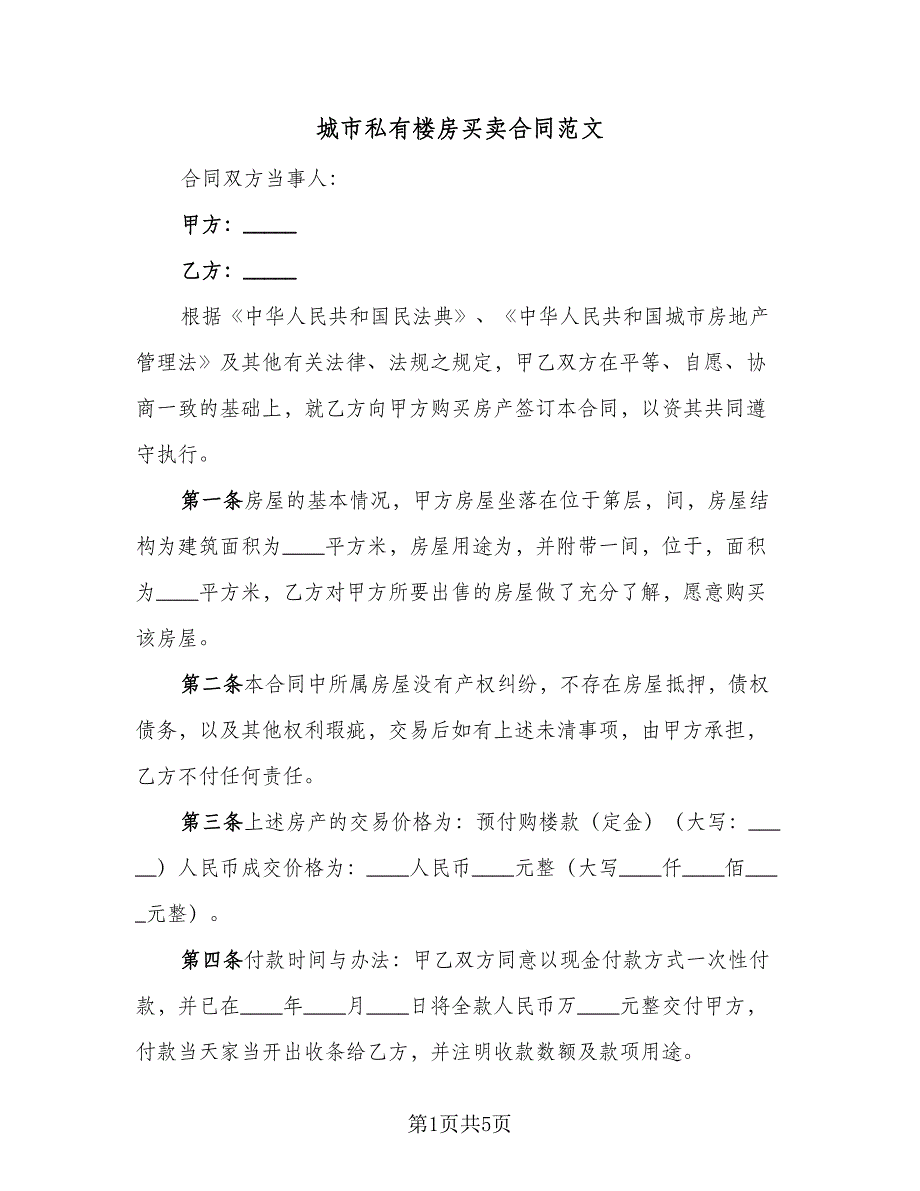 城市私有楼房买卖合同范文
合同双方当事人：
甲方：_____
乙方：_____
根据《中华人民共和国民法典》、《中华人民共和国城市房地产
管理法》及其他有关法律、法规之规定，甲乙双方在平等、自愿、协
商一致的基础上，就乙方向甲方购买房产签订本合同，以资其共同遵
守执行。
第一条房屋的基本情况，甲方房屋坐落在位于第层，间，房屋结
构为建筑面积为____平方米，房屋用途为，并附带一间，位于，面积
为____平方米，乙方对甲方所要出售的房屋做了充分了解，愿意购买
该房屋。
第二条本合同中所属房屋没有产权纠纷，不存在房屋抵押，债权
债务，以及其他权利瑕疵，交易后如有上述未清事项，由甲方承担，
乙方不付任何责任。
第三条上述房产的交易价格为：预付购楼款（定金）（大写：___
__）人民币成交价格为：____人民币____元整（大写____仟____佰___
_元整）。
第四条付款时间与办法：甲乙双方同意以现金付款方式一次性付
款，并已在____年____月____日将全款人民币万____元整交付甲方，
付款当天家当开出收条给乙方，并注明收款数额及款项用途。
第1页共5页